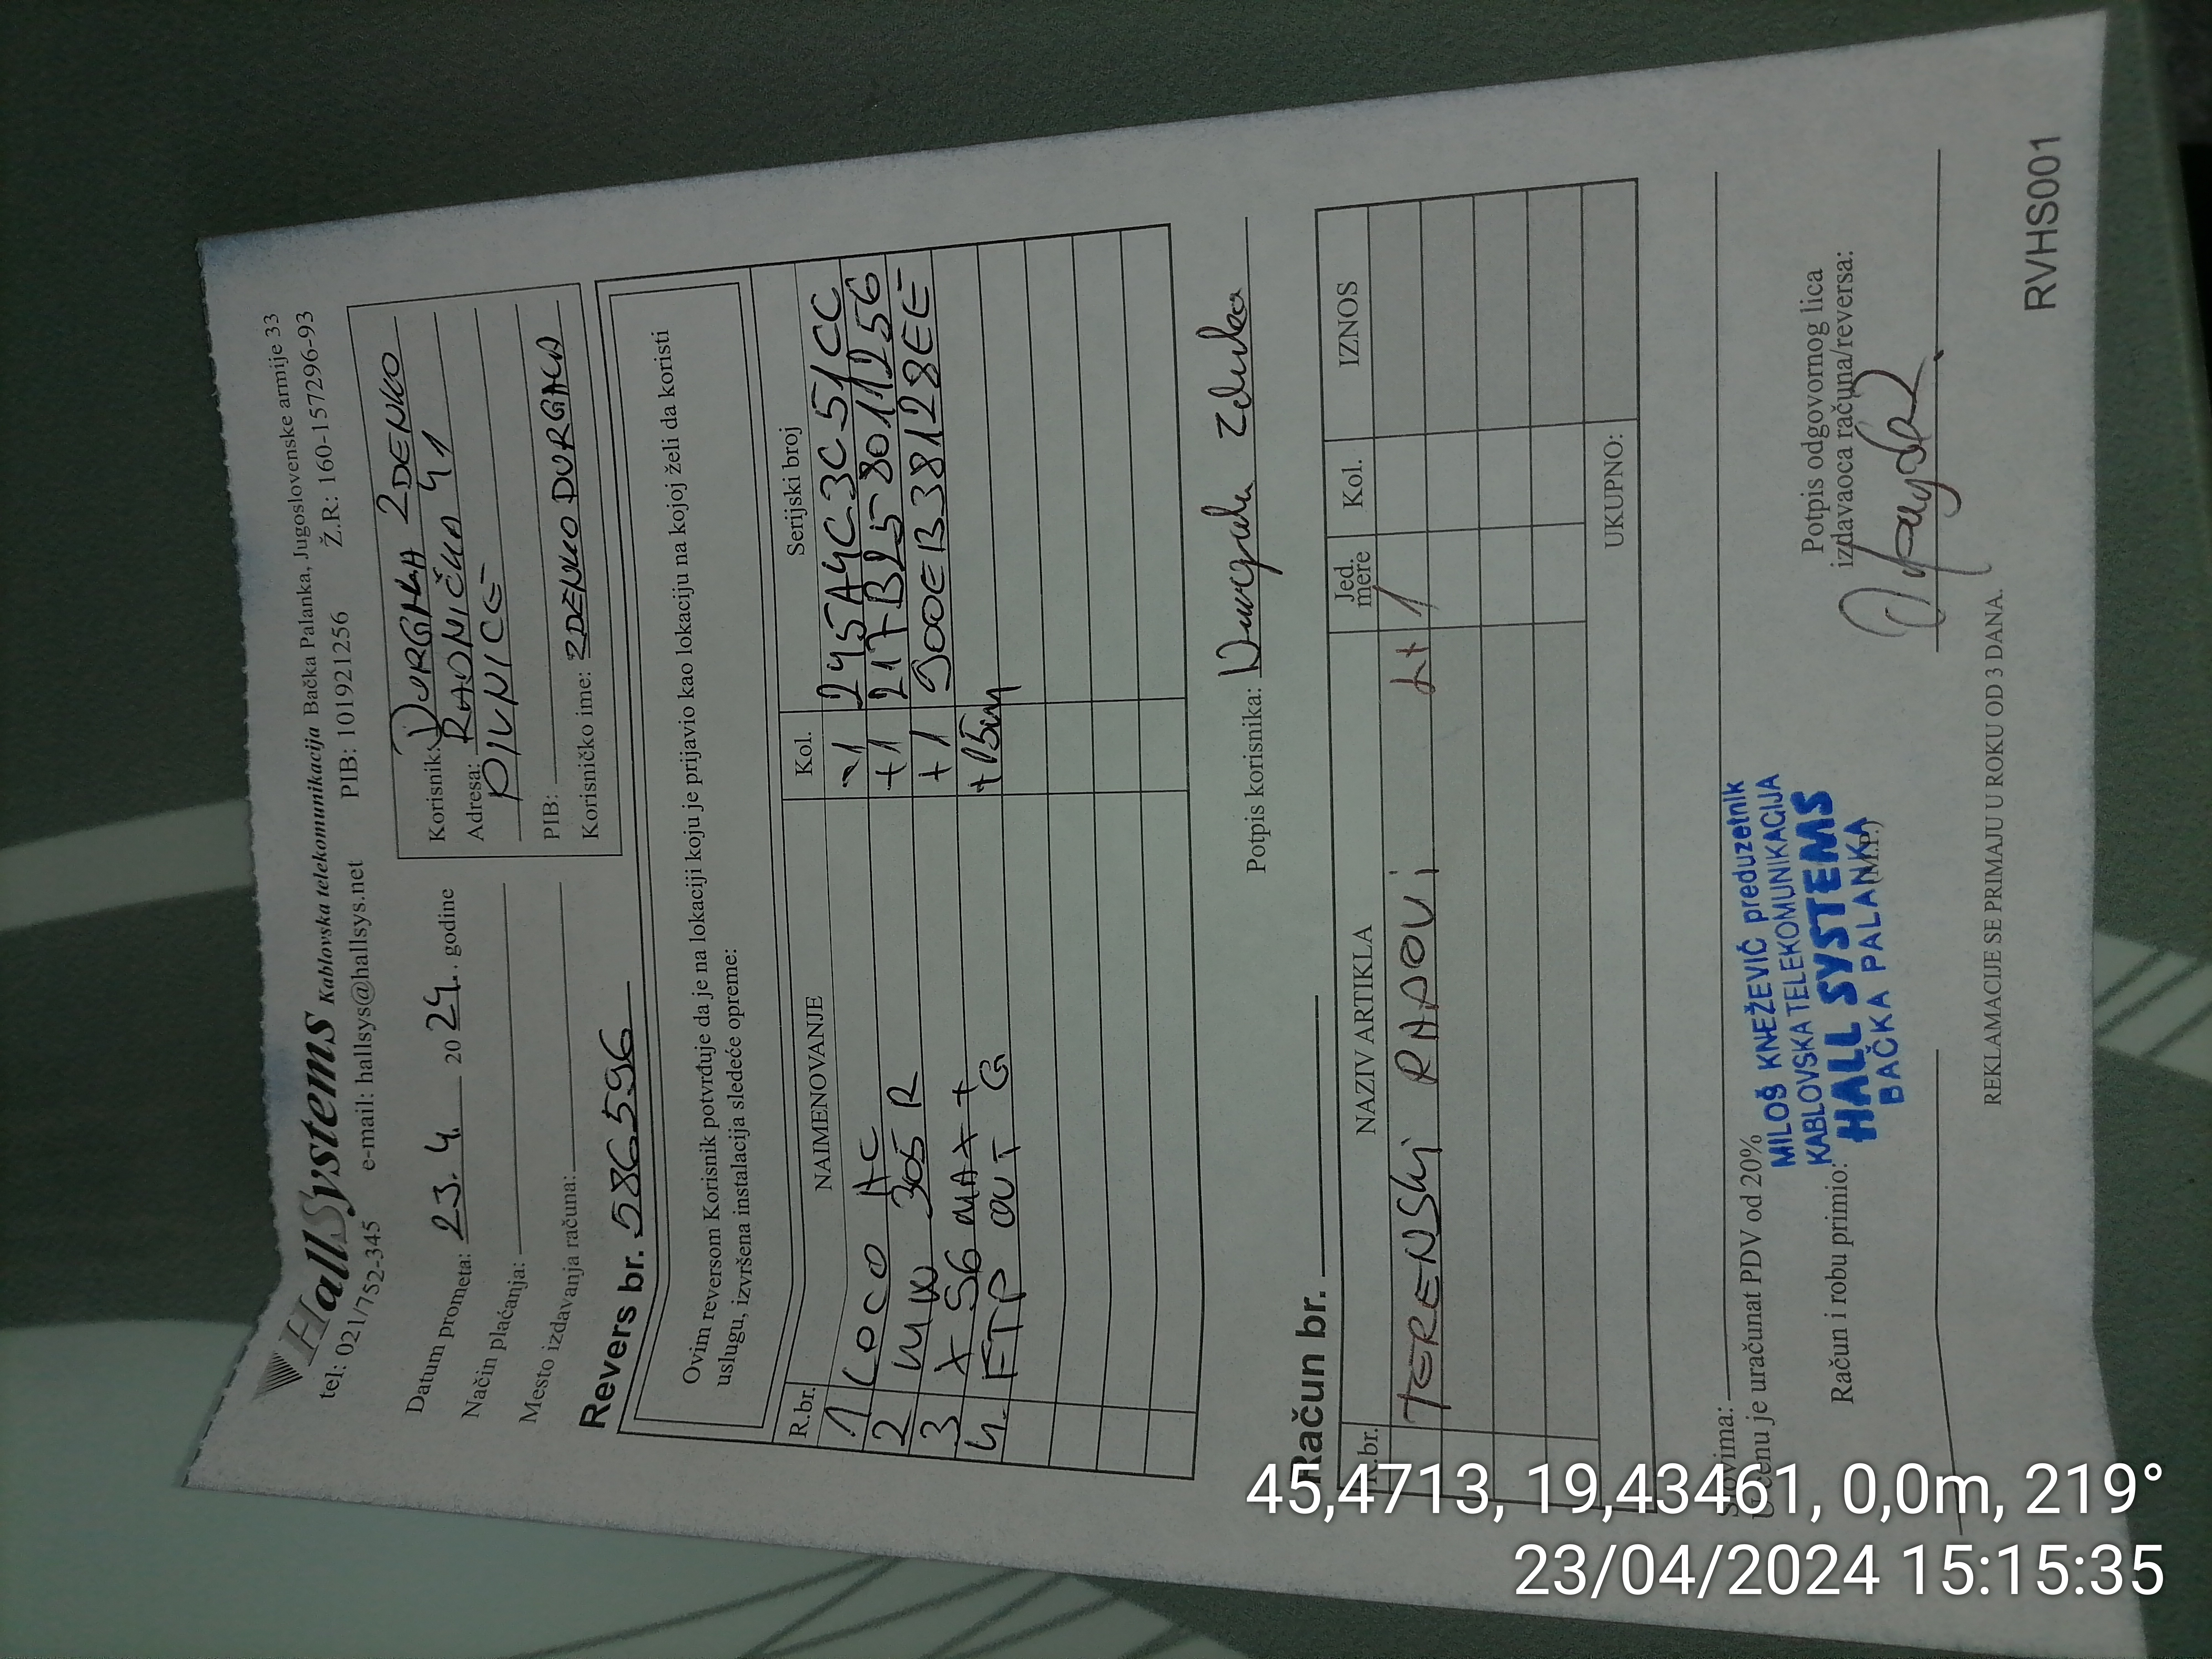 HallSystems Kablovska telekomunikacija Bačka Palanka, Jugoslovenske armije 33
tel: 021/752-345 e-mail: hallsys@hallsys.net PIB: 101921256 Ž.R.: 160-157296-93
Datum prometa: 23.4. 2024. godine
Način plaćanja:
Mesto izdavanja računa:
Korisnik: DURGALA ZDENKO
Adresa: RADNIČKA 41
PIVNICE
PIB:
Korisničko ime: ZDENKODURGALA
Revers br. 5865596
Ovim reversom Korisnik potvrđuje da je na lokaciji koju je prijavio kao lokaciju na kojoj želi da koristi
uslugu, izvršena instalacija sledeće opreme:
R.br. NAIMENOVANJE Kol. Serijski broj
1 LOCO AC -1 245A4C3C51CC
2 MW 305R +1 217B258011256
3 XS6 MAX+ +1 900EB38128EE
4. FTP OUT G +15m
Potpis korisnika: Durgala Zdenko
Račun br.
R.br. NAZIV ARTIKLA Jed. mere Kol. IZNOS
TERENSKI RADOVI 1
UKUPNO:
Slovima:
U cenu je uračunat PDV od 20%
MILOŠ KNEŽEVIĆ preduzetnik
KABLOVSKA TELEKOMUNIKACIJA
HALL SYSTEMS
BAČKA PALANKA
Račun i robu primio:
(M.P.)
Potpis odgovornog lica
izdavaoca računa/reversa:
REKLAMACIJE SE PRIMAJU U ROKU OD 3 DANA.
RVHS001
45,4713, 19,43461, 0,0m, 219°
23/04/2024 15:15:35